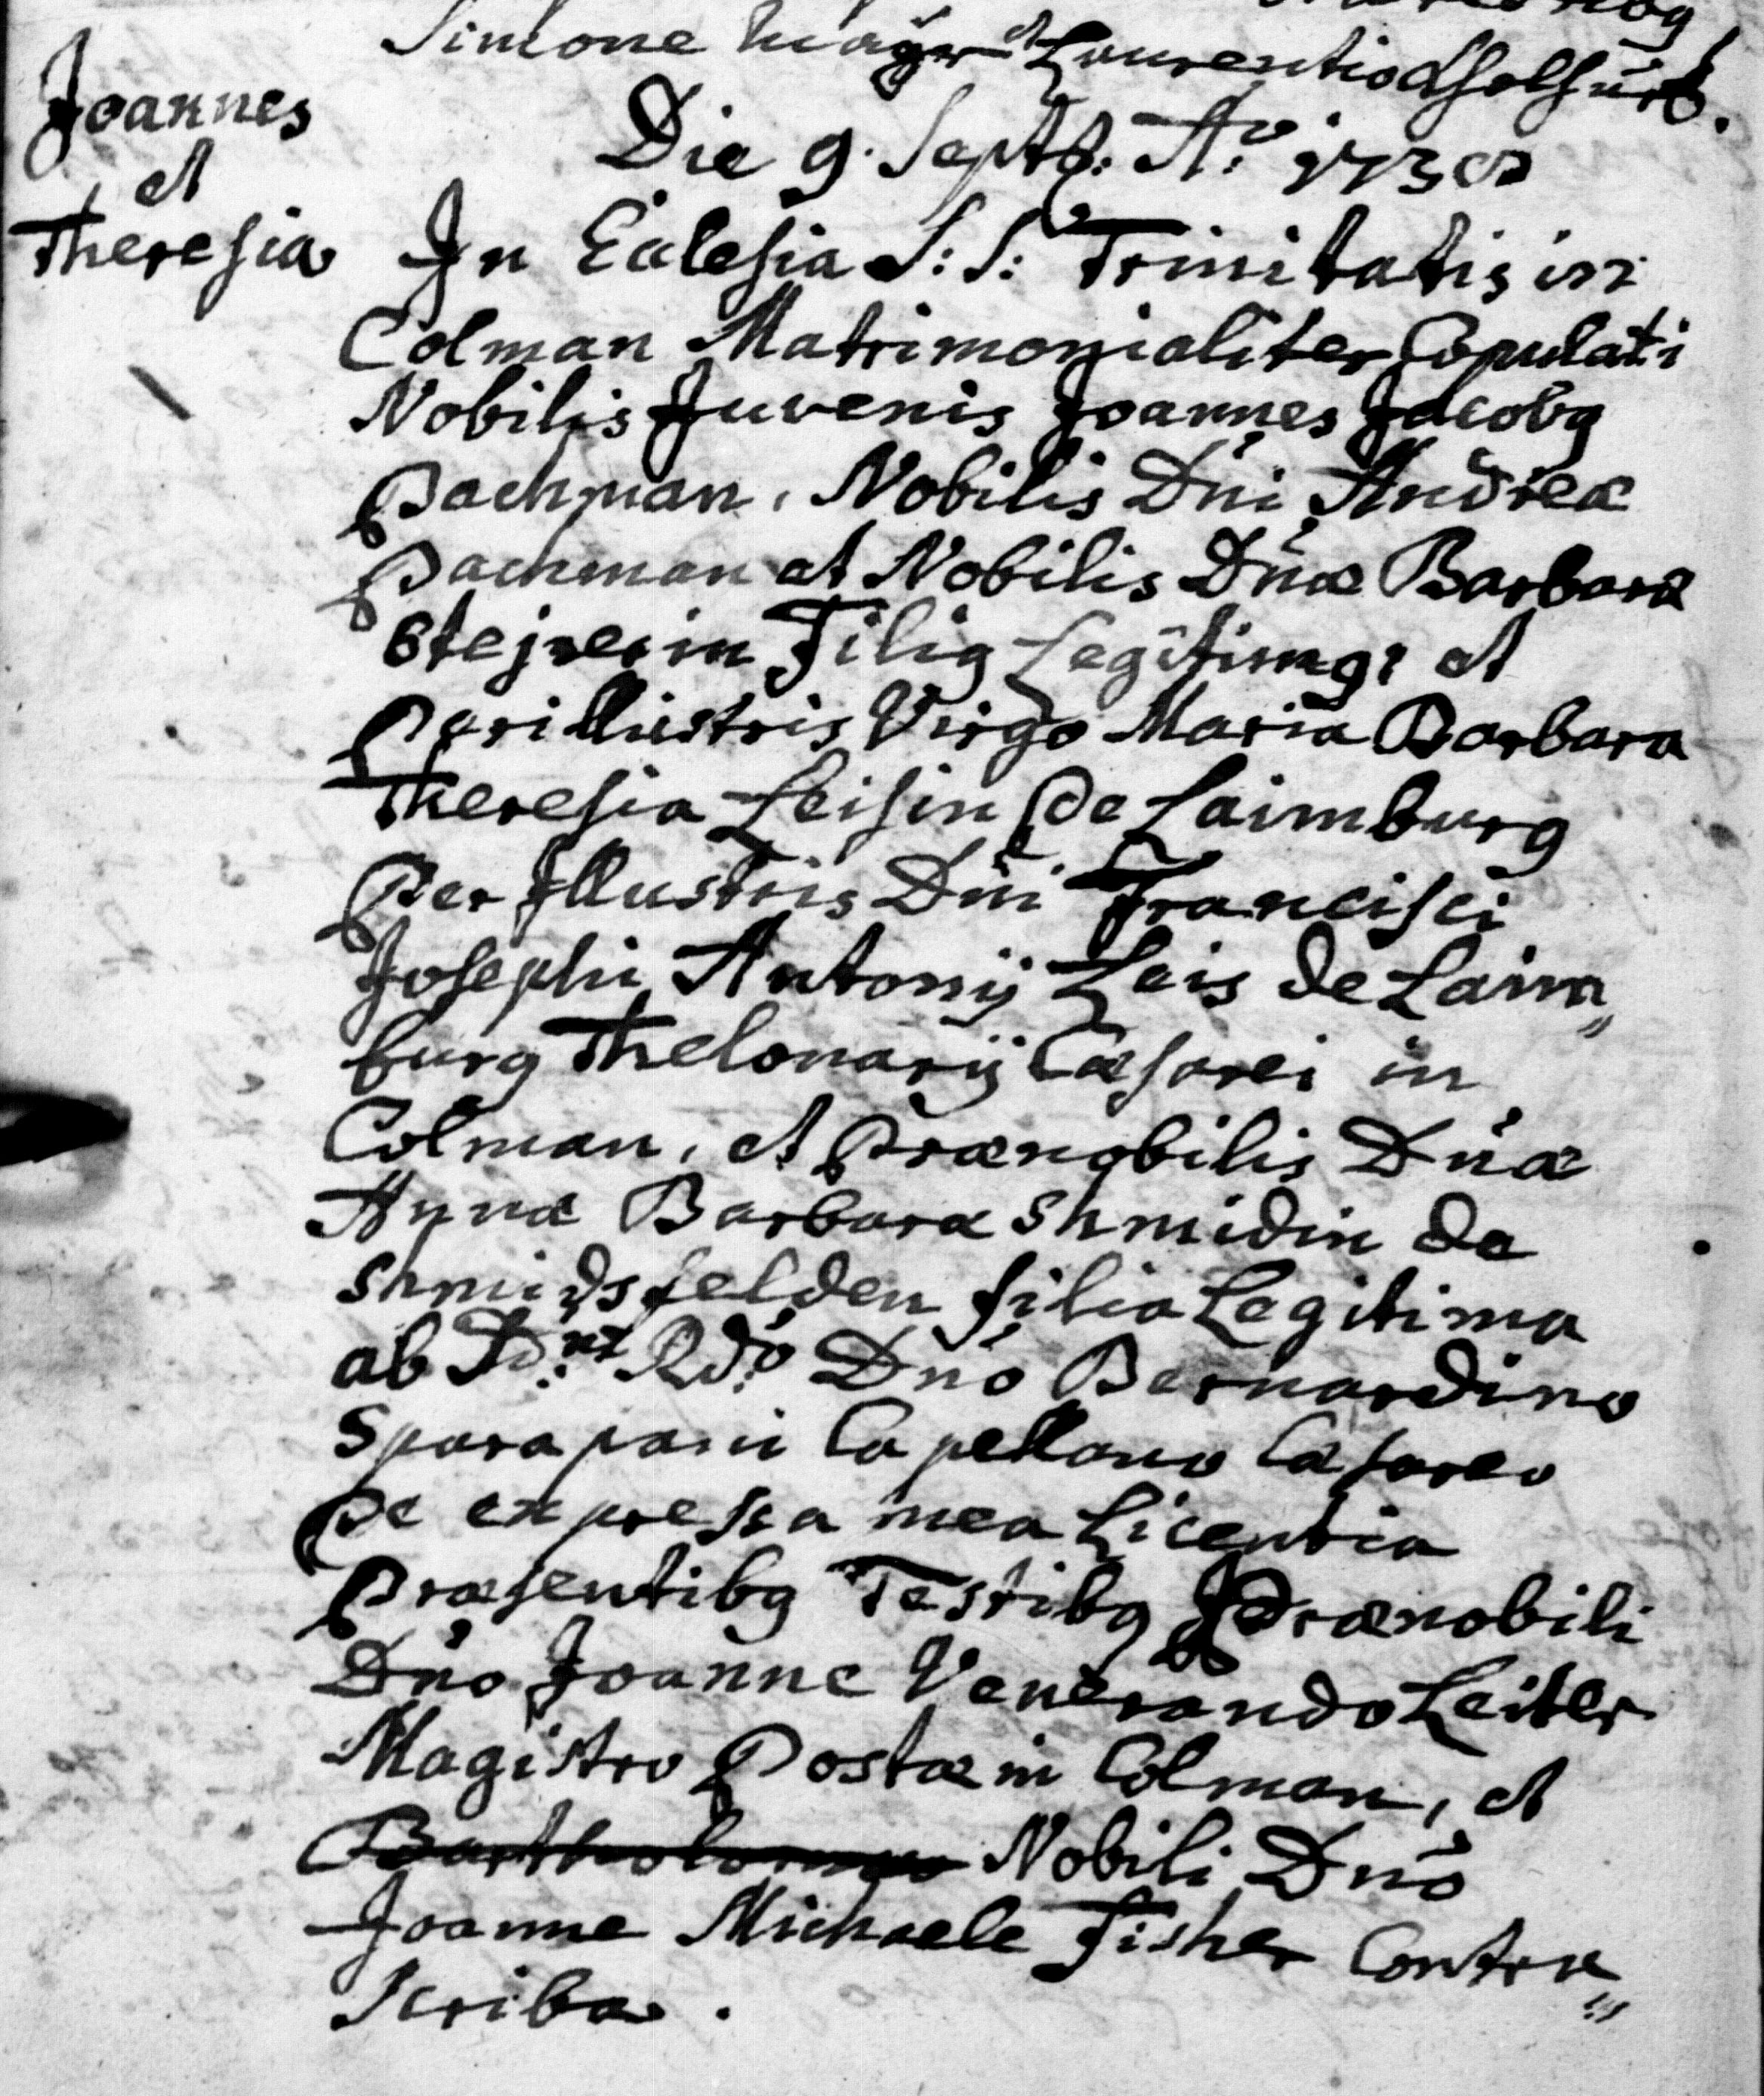 Simone Mayr et Laurentio
Joannes
et
Theresia
Die 9. Septb: Ao: 1738
In Eclesia S: S: Trinitatis in
Colman Matrimonialiter Copulati
Nobilis Juvenis Joannes Jacobg
Pachman, Nobilis Dni Andreæ
Pachman et Nobilis Dnæ Barbaræ
Filig Legitimg, et
Perillustris Virgo Maria Barbara
Theresia Leisin de Laimburg
Per Illustris Dni Francisci
Josephi Antonij Leis de Laim„
burg Thelonarij Cæsarei in
Colman, et Prænobilis Dnæ
Annæ Barbaræ Shmidin de
Shmidsfelden filia Legitima
ab Rdo Dno Bernardino
Sparapani Capellano Cæsareo
De expressa mea Licentia
Præsentibg Testibg Prænobili
Dno Joanne Venerando Leiter
Magistro Postæ in Colman, et
Bartholomæo Nobili Dno
Joanne Michaele Fisher Contra„
Scriba.